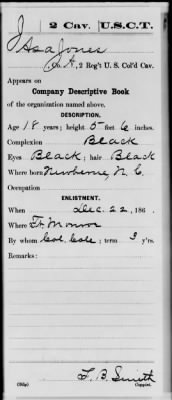 J 2 Cav. U.S.C.T.
Asa Jones
Co. A, 2 Reg't U. S. Col'd Cav.
Appears on
Company Descriptive Book
of the organization named above.
DESCRIPTION.
Age 18 years; height 5 feet 6 inches.
Complexion Black
Eyes Black; hair Black
Where born Newberne, N. C.
Occupation
ENLISTMENT.
When Dec. 22, 186 .
Where Ft. Monroe
By whom Col. Cole; term 3 y'rs.
Remarks:
F. B. Smith
Copyist.